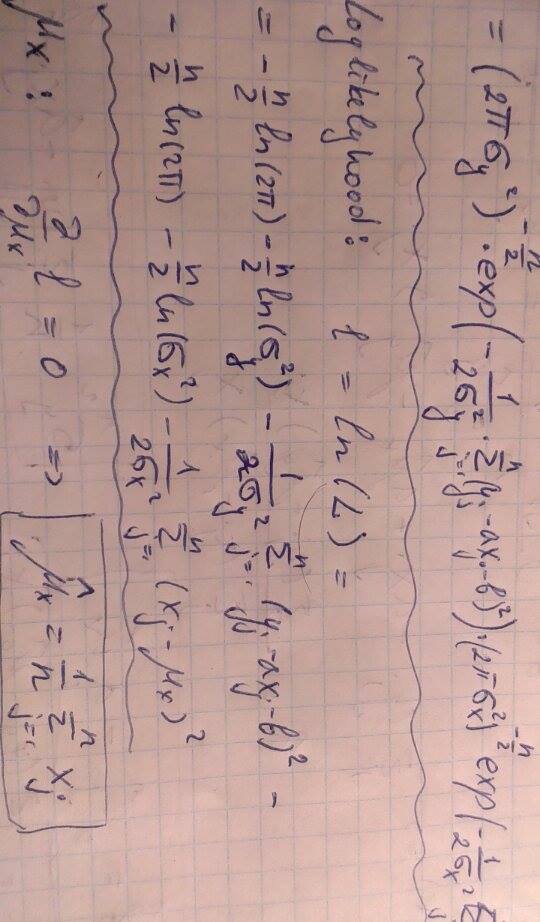 = (2πσ_y²)^{-n/2} · exp(-1/(2σ_y²) · Σ_{j=1}^{n} (y_j - ax_j - b)²) · (2πσ_x²)^{-n/2} exp(-1/(2σ_x²) Σ_j
Log likelyhood: ℓ = ln(L) =
= -n/2 ln(2π) - n/2 ln(σ_y²) - 1/(2σ_y²) Σ_{j=1}^{n} (y_j - ax_j - b)² -
- n/2 ln(2π) - n/2 ln(σ_x²) - 1/(2σ_x²) Σ_{j=1}^{n} (x_j - μ_x)²
μ_x : ∂/∂μ_x ℓ = 0 => μ̂_x = 1/n Σ_{j=1}^{n} x_j